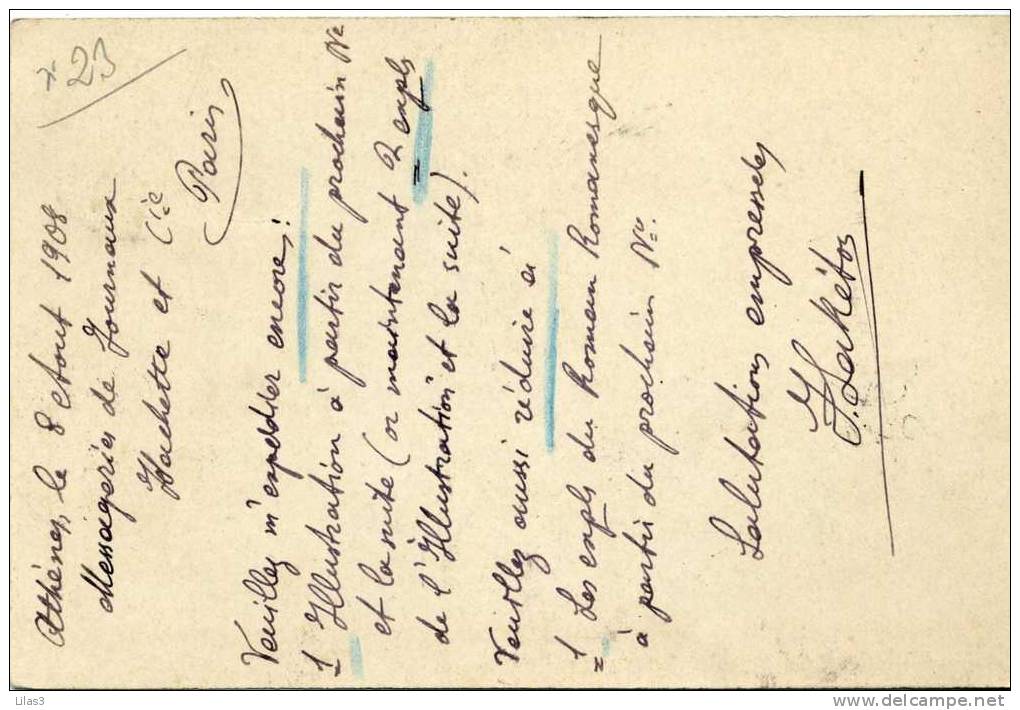 23
Athènes, le 8 etout 1908
Messageries de Journaux
Hachette et Cie
Paris
Veuillez m'expédier encore:
1 Illustration à partir du prochain No
et la suite (or maintenant 2 expls
de l'Illustration et la suite).
Veuillez aussi réduire à
1 Les expls du Roman Romanesque
à partir du prochain No.
Salutations empressées
Lilas3
www.delcampe.net